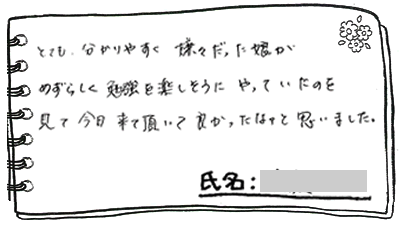 とても、分かりやすく 嫌々だった娘が
めずらしく勉強を楽しそうに やっていたのを
見て今日 来て頂いて良かったなァと思いました。
氏名: